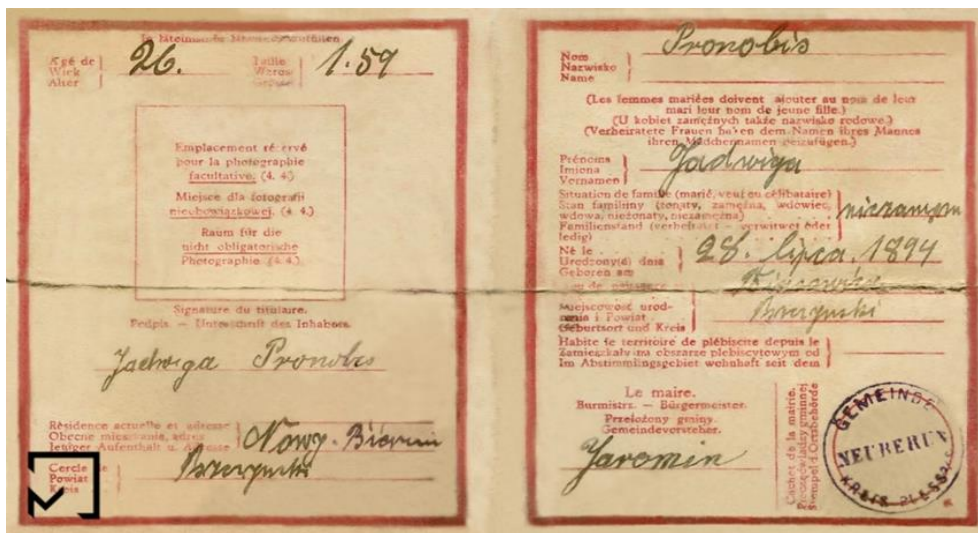 Agé de
Wiek
Alter
26.
Taille
Wzrost
1.59
Emplacement réservé
pour la photographie
facultative. (4. 4.)
Miejsce dla fotografii
nieobowiązkowej. (4. 4.)
Raum für die
nicht obligatorische
Photographie (4. 4.)
Signature du titulaire.
Podpis. — Unterschrift des Inhabers.
Jadwiga Pronobis
Résidence actuelle et adresse
Obecne mieszkanie, adres
Jetziger Aufenthalt u. Adresse
Nowy-Bieruń
Cercle
Powiat
Kreis
Nom
Nazwisko
Name
Pronobis
(Les femmes mariées doivent ajouter au nom de leur
mari leur nom de jeune fille.)
(U kobiet zamężnych także nazwisko rodowe.)
(Verheiratete Frauen haben dem Namen ihres Mannes
ihren Mädchennamen beizufügen.)
Prénoms
Imiona
Vornamen
Jadwiga
Situation de famille (marié, veuf ou célibataire)
Stan familijny (żonaty, zamężna, wdowiec,
wdowa, nieżonaty, niezamężna)
Familienstand (verheiratet — verwitwet oder
ledig)
Né le
Urodzony(a) dnia
Geboren am
28. lipca. 1894
Miejscowość urod-
zenia i Powiat
Geburtsort und Kreis
Habite le territoire de plébiscite depuis le
Zamieszkały na obszarze plebiscytowym od
Im Abstimmungsgebiet wohnhaft seit dem
Le maire.
Burmistrz. — Bürgermeister.
Przełożony gminy.
Gemeindevorsteher.
Jaromin
Cachet de la mairie.
Pieczęć władzy gminnej
Stempel d. Ortsbehörde
GEMEINDE
NEUBERUN
KREIS PLESS